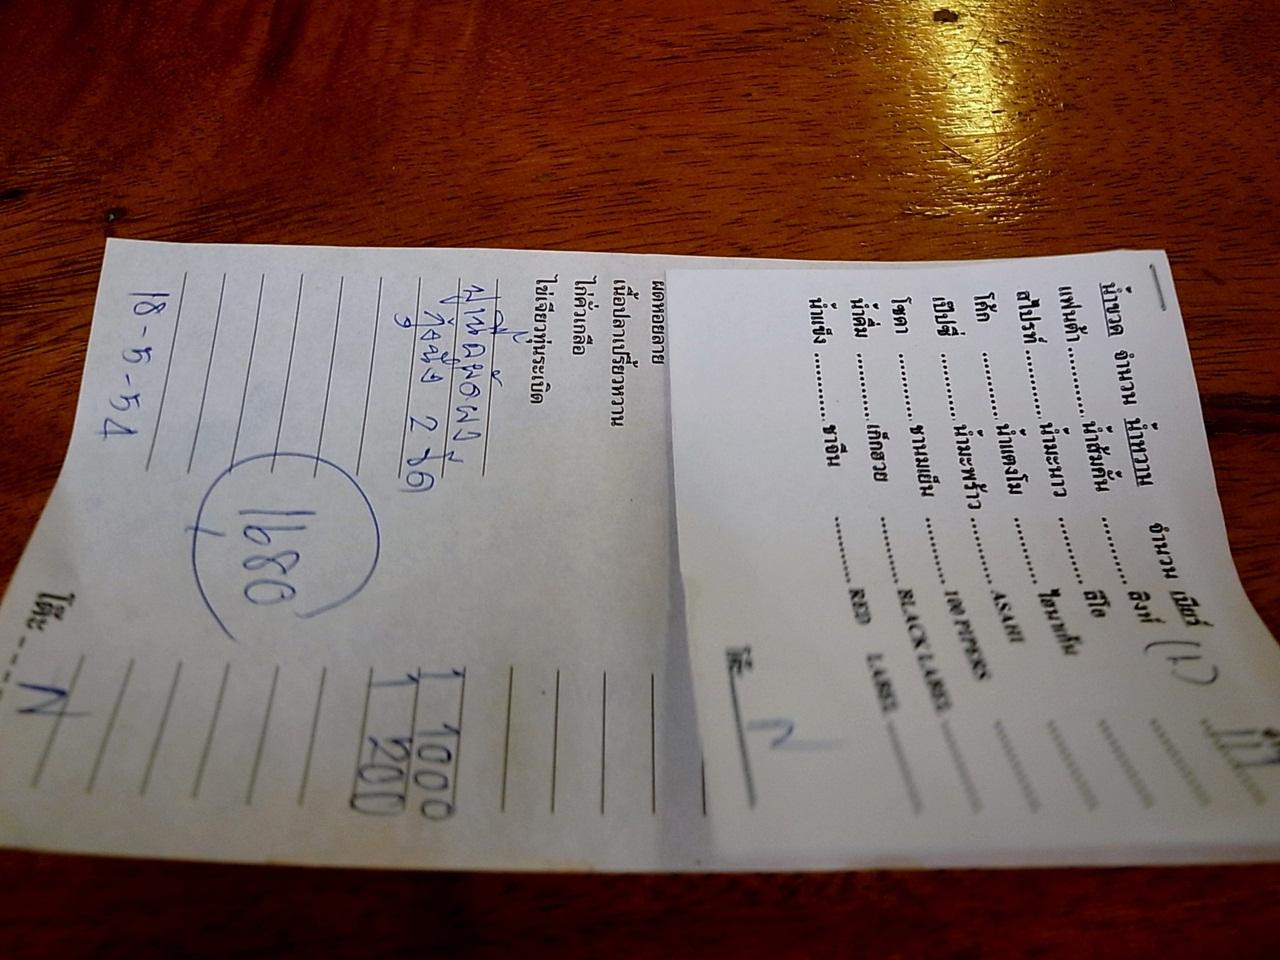 น้ำขวด จำนวน น้ำหวาน จำนวน เบียร์
แฟนต้า ........... น้ำส้มคั้น ........... สิงห์ ...........
สไปรท์ ........... น้ำมะนาว ........... ลีโอ ...........
โค้ก ........... น้ำแตงโม ........... ไฮนาเก้น ...........
เป็ปซี่ ........... น้ำมะพร้าว ........... ASAHI ...........
โซดา ........... ชานมเย็น ........... 100 PIPERS ...........
น้ำดื่ม ........... เก็กฮวย ........... BLACK LABEL ...........
น้ำแข็ง ........... ชาจีน ........... RED LABEL ...........
โต๊ะ N
ผัดหอยลาย
เนื้อปลาเปรี้ยวหวาน
ไก่คั่วเกลือ
ไข่เจียวทุ่นระเบิด
1 1000
2 1 200
1680
18-5-54
โต๊ะ N